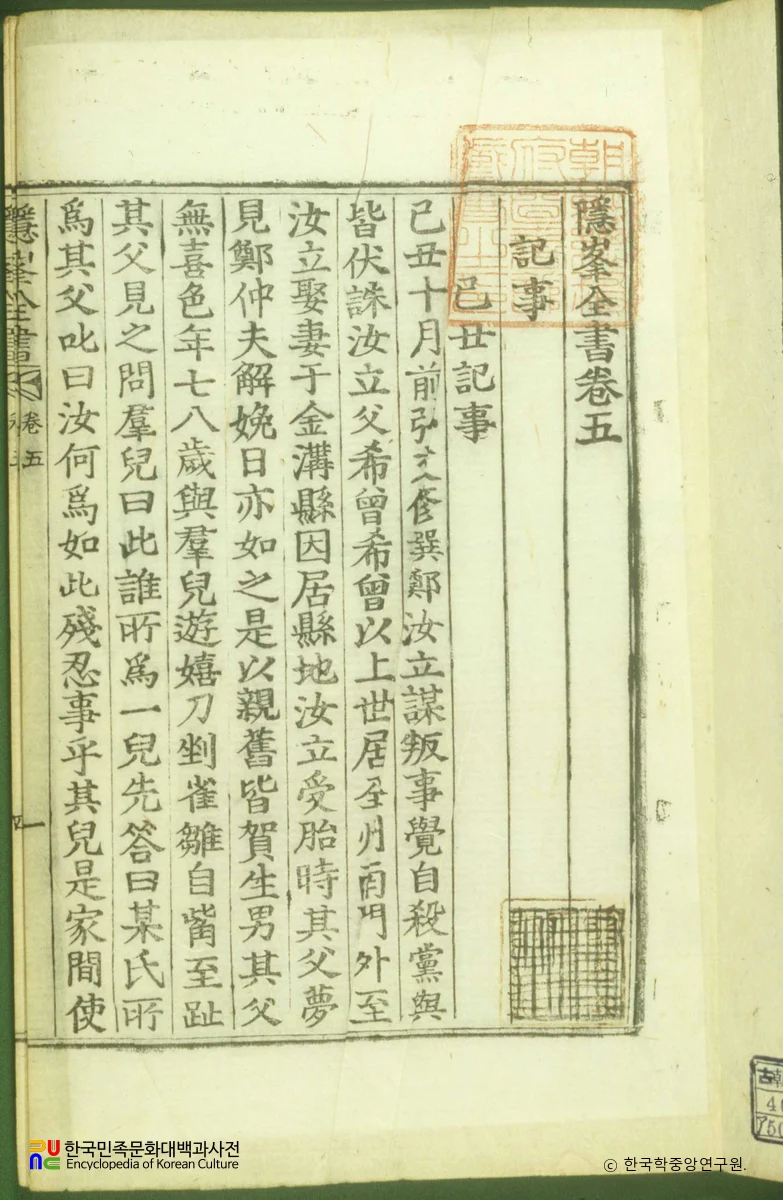 隱峯全書卷五
記事
己丑記事
己丑十月前弘文修撰鄭汝立謀叛事覺自殺黨與
皆伏誅汝立父希曾希曾以上世居全州南門外至
汝立娶妻于金溝縣因居縣地汝立受胎時其父夢
見鄭仲夫解娩日亦如之是以親舊皆賀生男其父
無喜色年七八歲與羣兒遊嬉刀剉雀雛自觜至趾
其父見之問羣兒曰此誰所爲一兒先答曰某氏所
爲其父叱曰汝何爲如此殘忍事乎其兒是家間使
隱峯全書 卷五 一
古朝
한국민족문화대백과사전
Encyclopedia of Korean Culture
ⓒ 한국학중앙연구원.